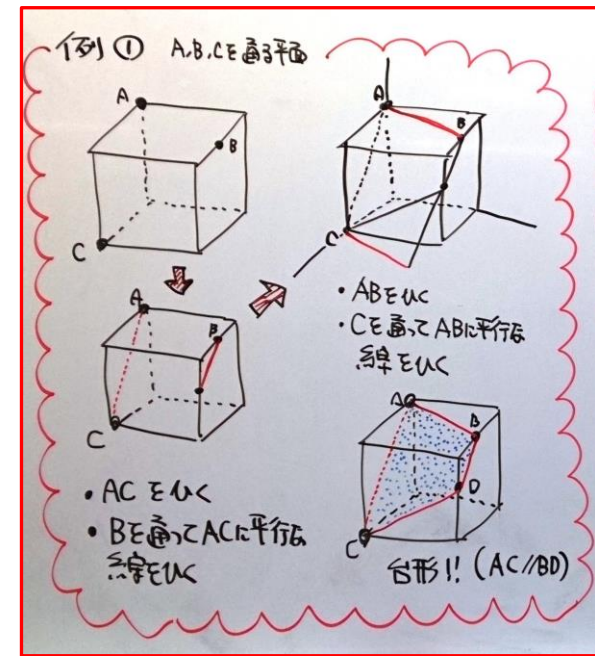 例① A,B,Cを通る平面
A
B
C
A
B
C
・ACをひく
・Bを通ってACに平行な
線をひく
A
B
C
・ABをひく
・Cを通ってABに平行な
線をひく
A
B
D
C
台形!! (AC//BD)